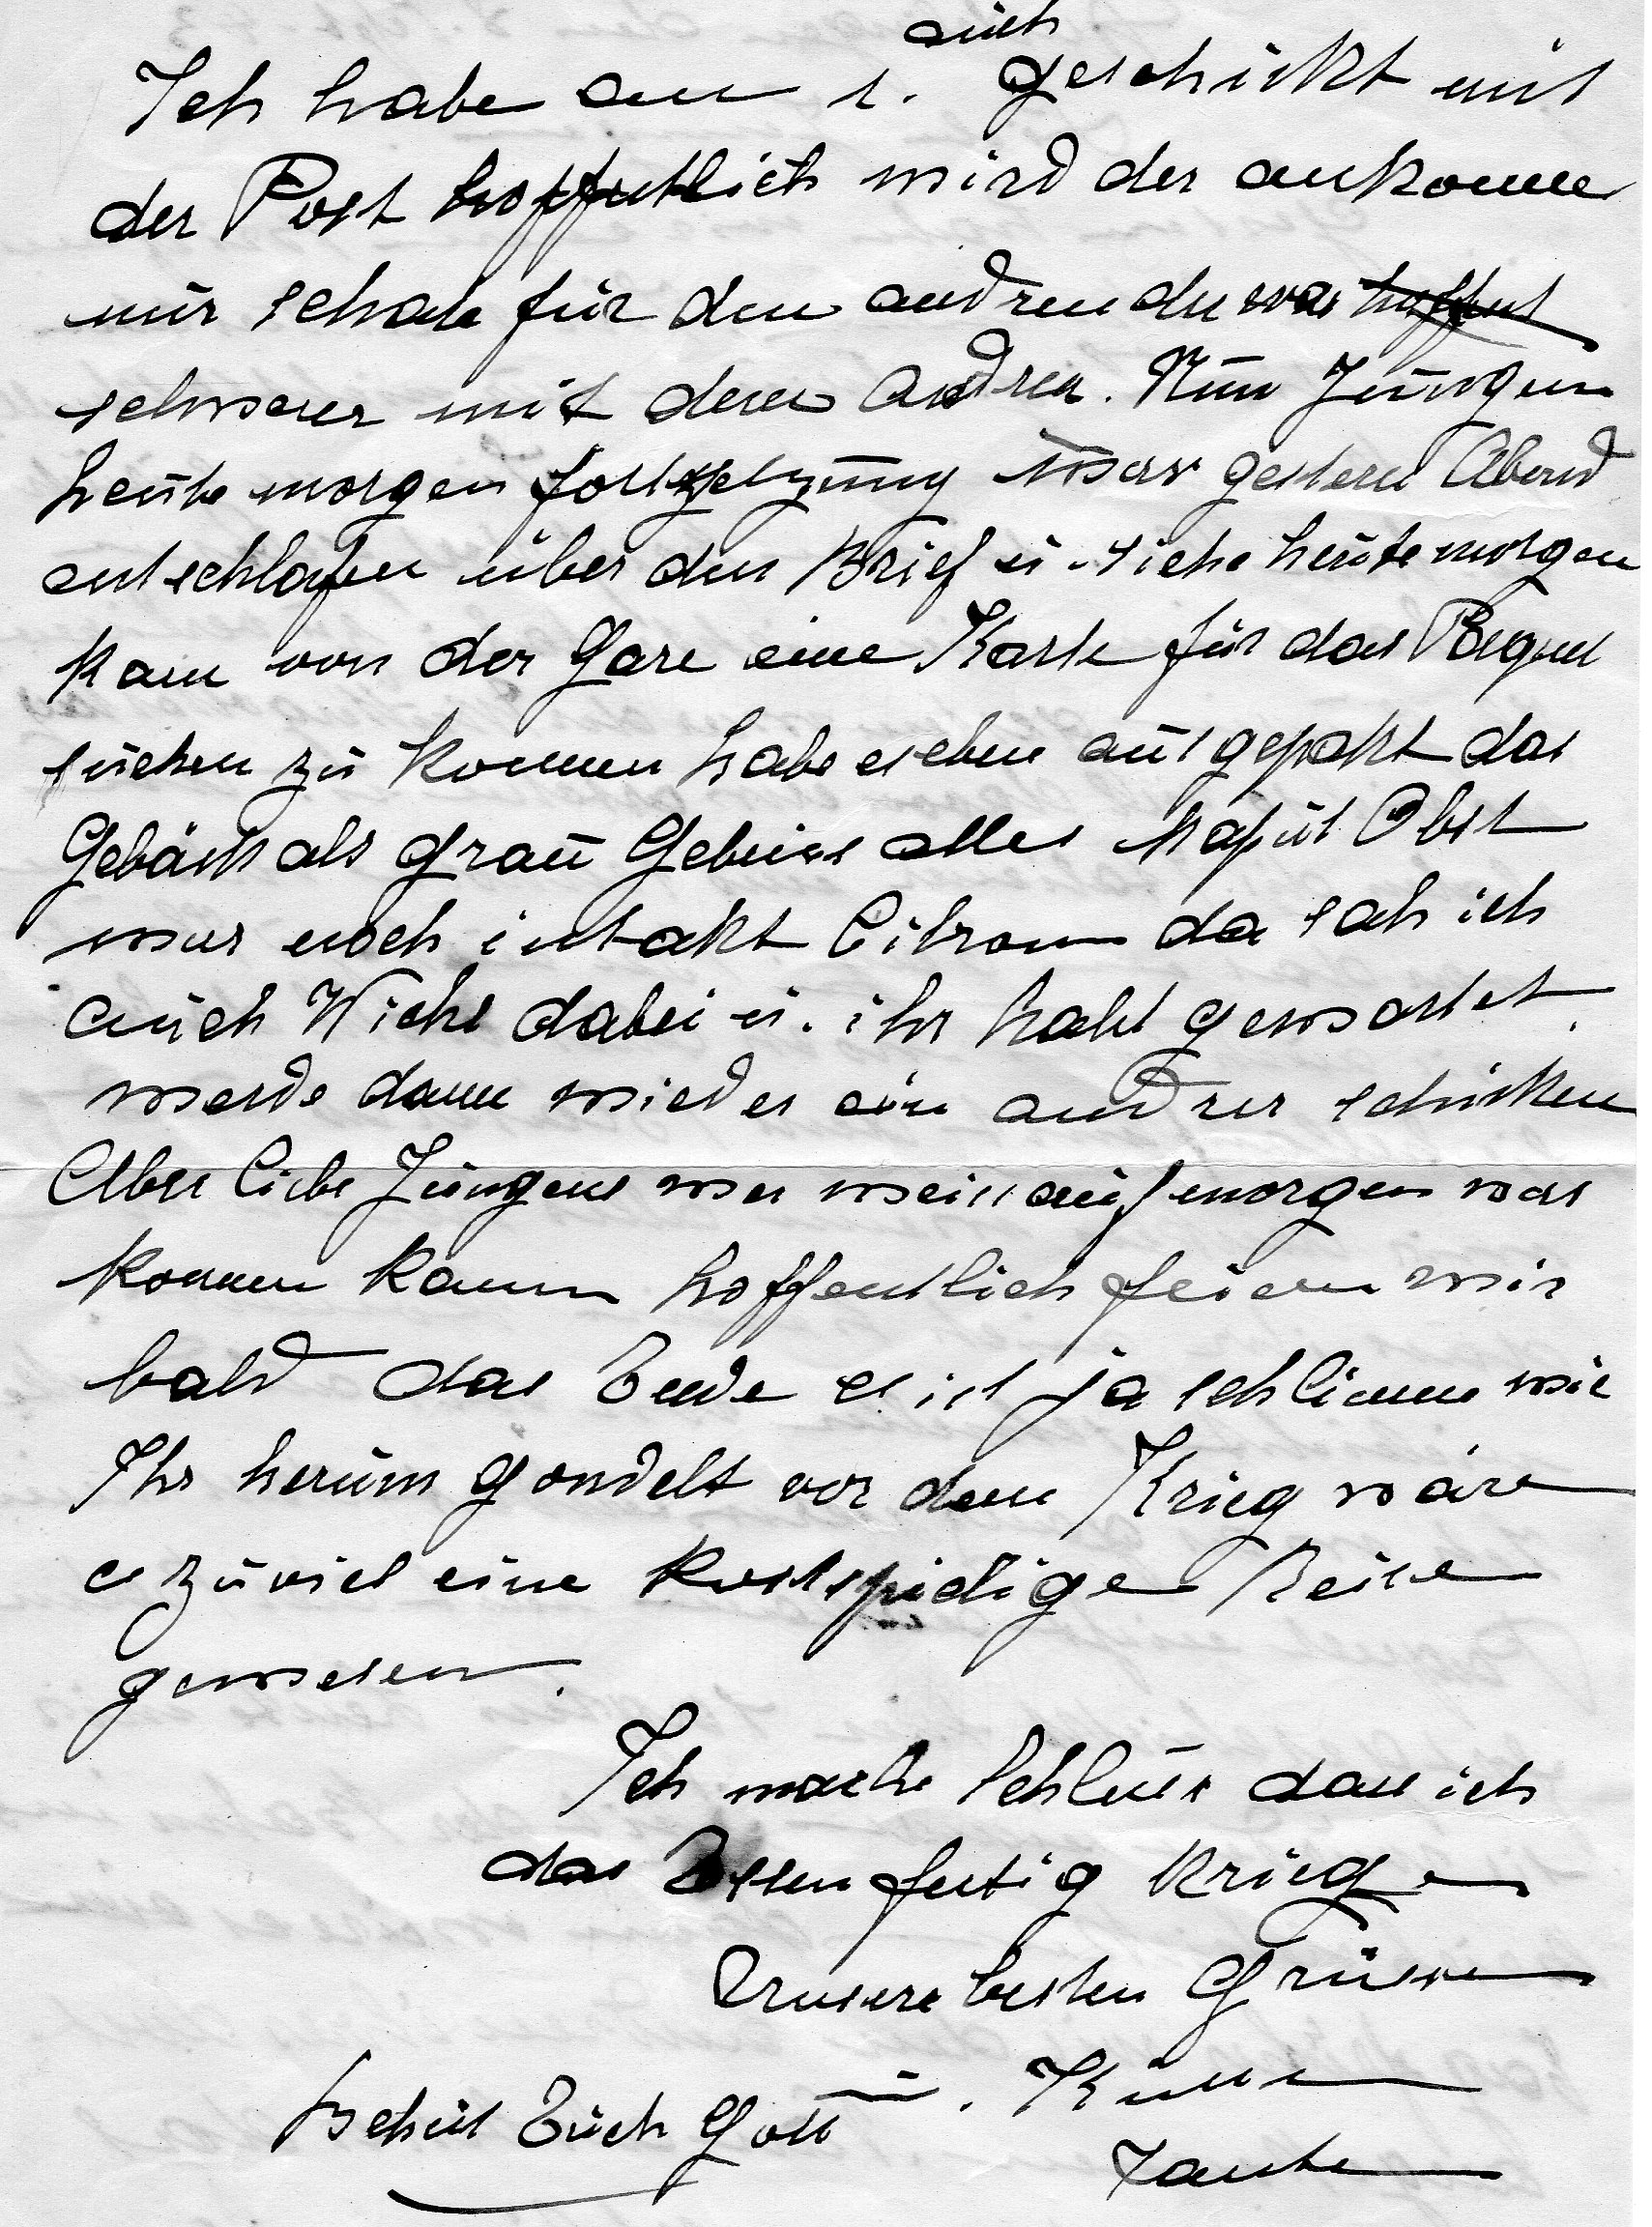 auch
Ich habe am 1. geschickt mit
der Post hoffentlich wird der ankomme
nur schade für den andren der war
schwerer mit deren Andrea. Nun Jungen
heute morgen fortsetzung war gestern Abend
entschlafen über den Brief u. siehe heute morgen
kam von der Gare eine Karte für das Paquet
suchen zu kommen habe es eben ausgepakt das
Gebäck als grau Gebiess alles kaput Obst
war noch intakt Citron da sah ich
auch Wichs dabei u. ihr habt gewartet.
werde dann wieder ein andrer schicken
Aber liebe Jungens wer weiss auf morgen was
kommen kann hoffentlich feiern wir
bald das Ende es ist ja schlimm wie
Ihr herum gondelt vor dem Krieg wäre
es zuviel eine kostspidige Reise
gewesen.
Ich mache Schluss dass ich
das Essen fertig kriege
Unsere besten Grüsse
Behüt Euch Gott u. Küsse
Tante